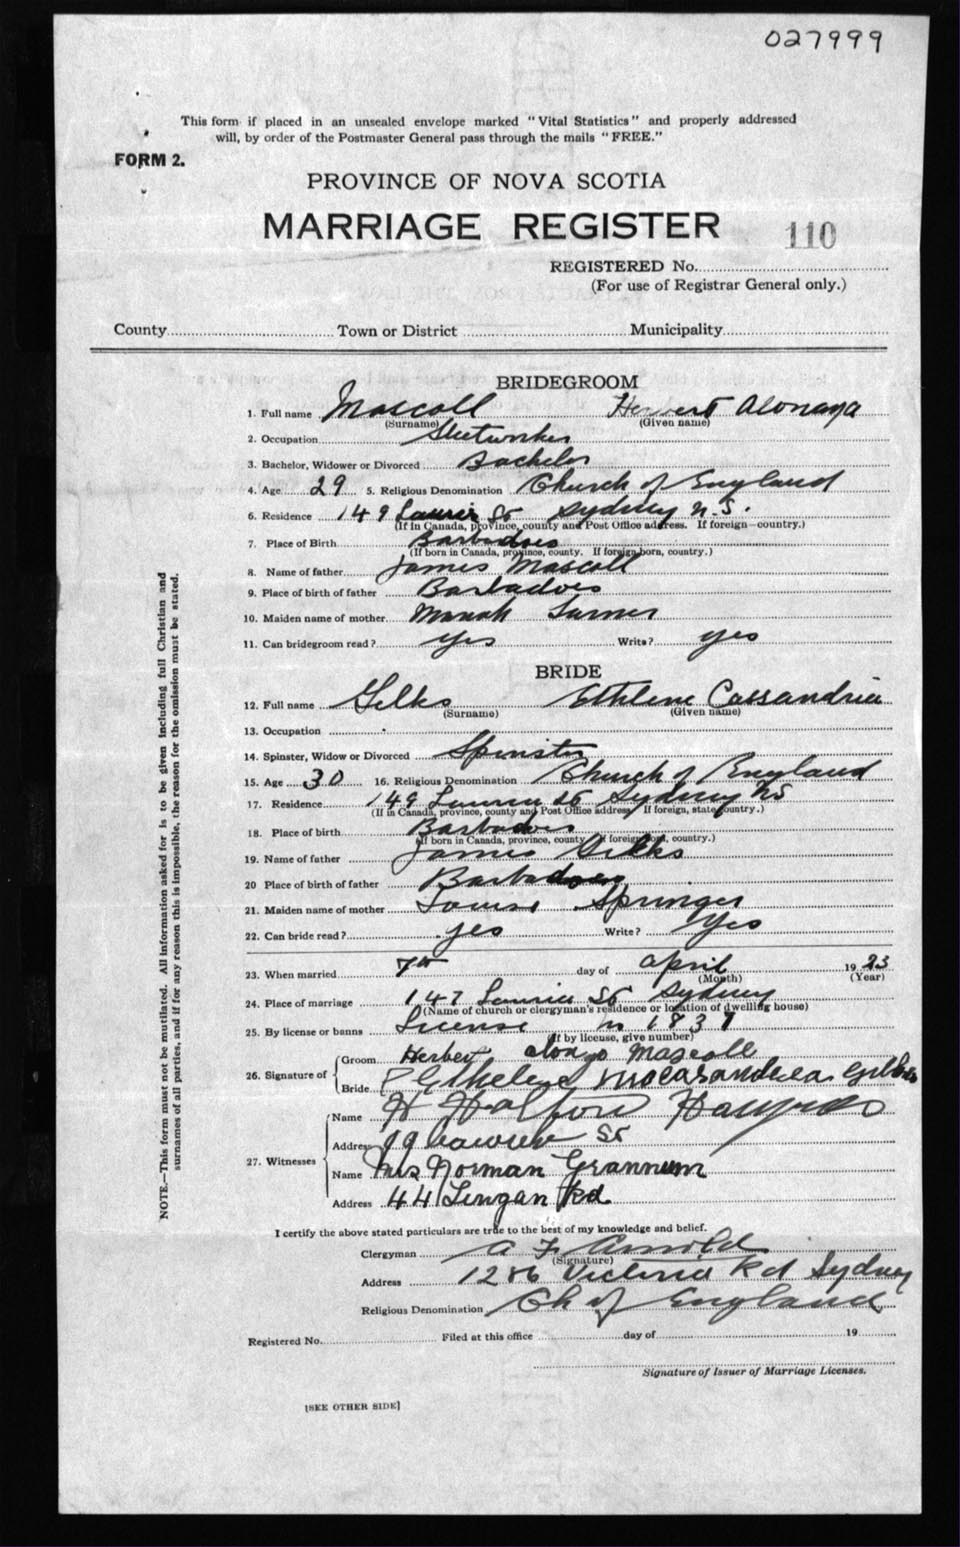 027999
This form if placed in an unsealed envelope marked "Vital Statistics" and properly addressed
will, by order of the Postmaster General pass through the mails "FREE."
FORM 2.
PROVINCE OF NOVA SCOTIA
MARRIAGE REGISTER 110
REGISTERED No.
(For use of Registrar General only.)
County Town or District Municipality
BRIDEGROOM
1. Full name Mascoll Herbert
(Surname) (Given name)
2. Occupation
3. Bachelor, Widower or Divorced Bachelor
4. Age 29 5. Religious Denomination Church of England
6. Residence 149 Laurier St Sydney N.S.
(If in Canada, province, county and Post Office address. If foreign—country.)
7. Place of Birth Barbadoes
(If born in Canada, province, county. If foreign born, country.)
8. Name of father James Mascoll
9. Place of birth of father Barbadoes
10. Maiden name of mother Turner
11. Can bridegroom read? yes Write? yes
BRIDE
12. Full name Ethlene Cassandria
(Surname) (Given name)
13. Occupation
14. Spinster, Widow or Divorced Spinster
15. Age 30 16. Religious Denomination Church of England
17. Residence 149 Laurier St Sydney NS
(If in Canada, province, county and Post Office address. If foreign, state country.)
18. Place of birth Barbadoes
(If born in Canada, province, county. If foreign born, country.)
19. Name of father James
20 Place of birth of father Barbadoes
21. Maiden name of mother Louise Springer
22. Can bride read? yes Write? Yes
23. When married 7th day of April 1923
(Month) (Year)
24. Place of marriage 147 Laurier St Sydney
(Name of church or clergyman's residence or location of dwelling house)
25. By license or banns License no
(If by license, give number)
26. Signature of Groom Herbert Alonzo Mascoll
Bride
27. Witnesses
Name H
Address St
Name Mrs Norman Grannum
Address 44 Lingan Rd
I certify the above stated particulars are true to the best of my knowledge and belief.
Clergyman A F Arnold
(Signature)
Address Victoria Rd Sydney
Religious Denomination Ch of England
Registered No. Filed at this office day of 19
Signature of Issuer of Marriage Licenses.
[SEE OTHER SIDE]
NOTE.—This form must not be mutilated. All information asked for is to be given including full Christian and
surnames of all parties, and if for any reason this is impossible, the reason for the omission must be stated.